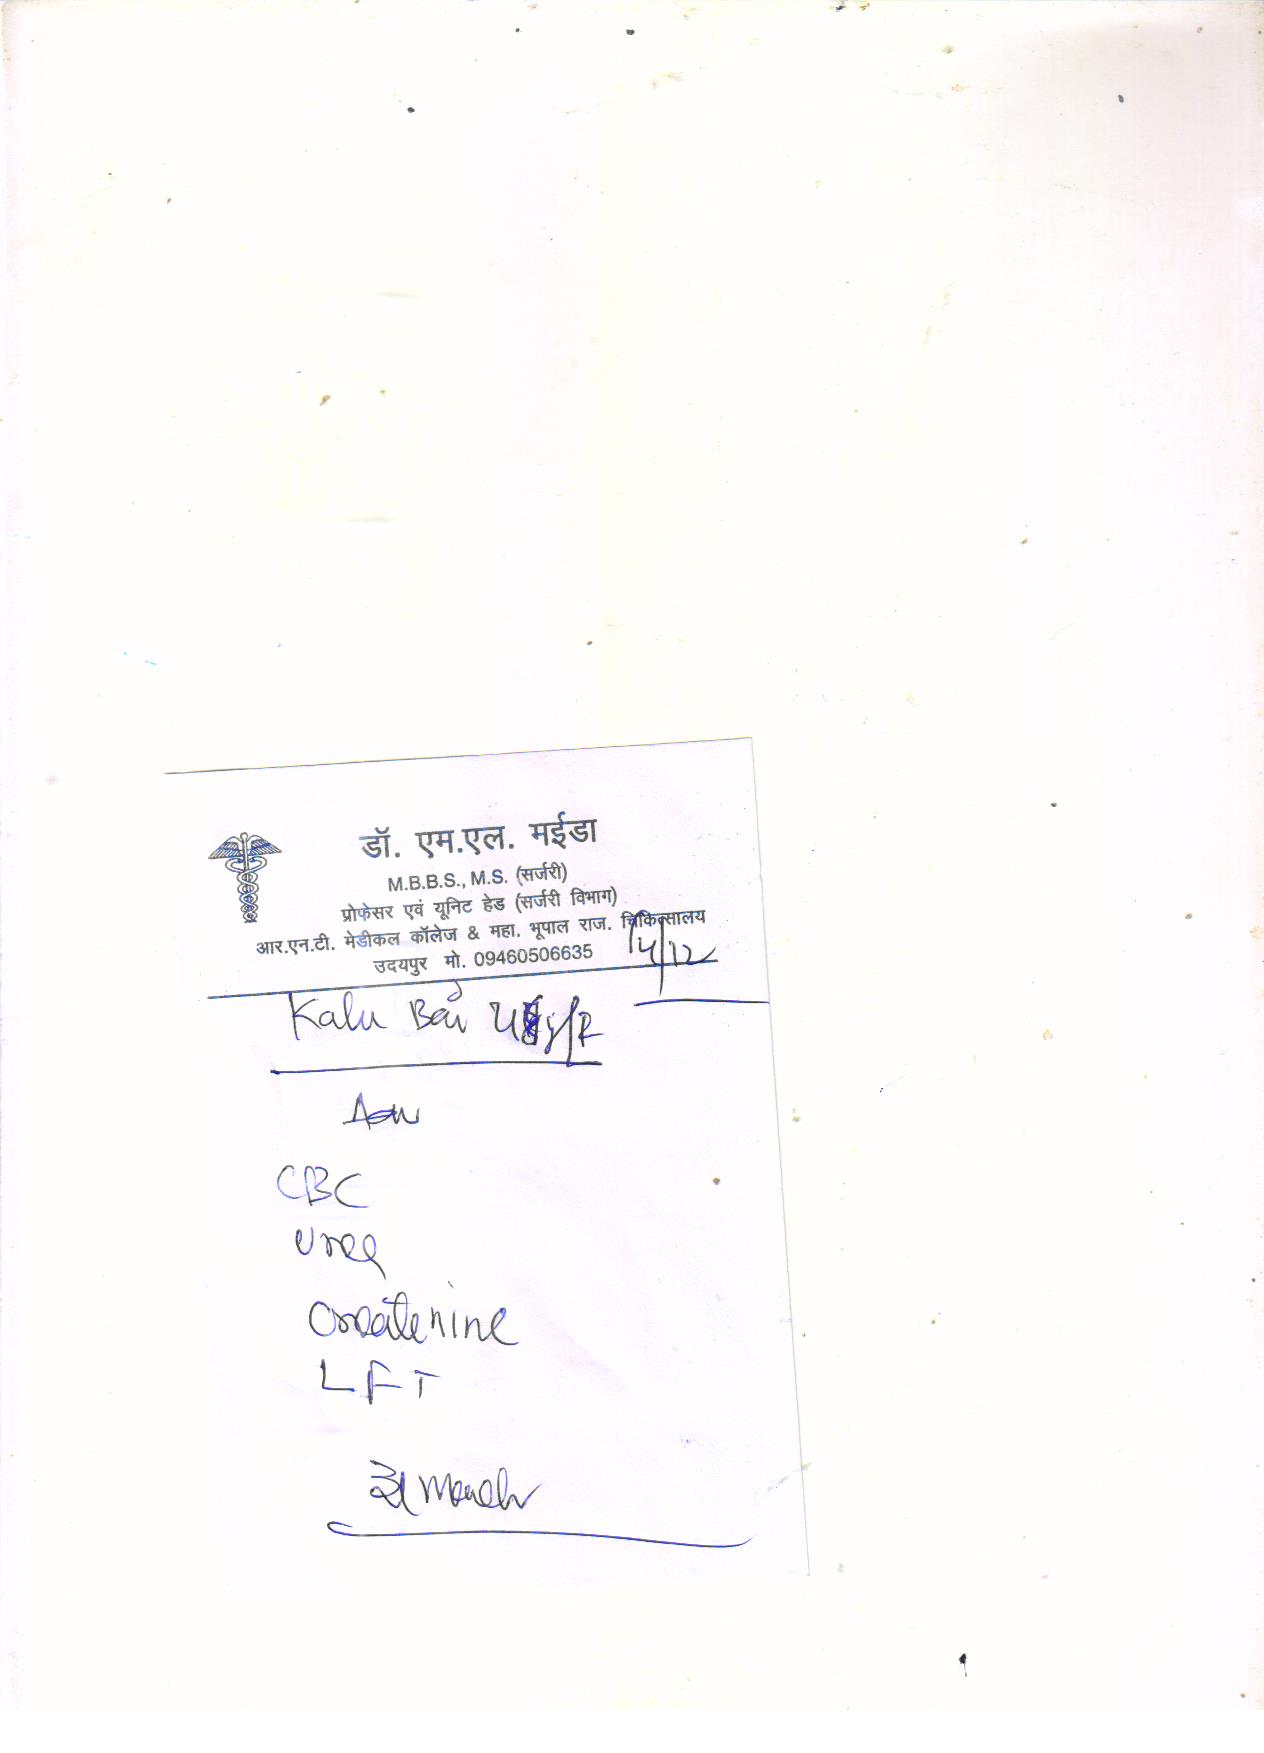 डॉ. एम.एल. मईडा
M.B.B.S., M.S. (सर्जरी)
प्रोफेसर एवं यूनिट हेड (सर्जरी विभाग)
आर.एन.टी. मेडीकल कॉलेज & महा. भूपाल राज. चिकित्सालय
उदयपुर मो. 09460506635
Kalu Bai
CBC
Urea
Createnine
LFT